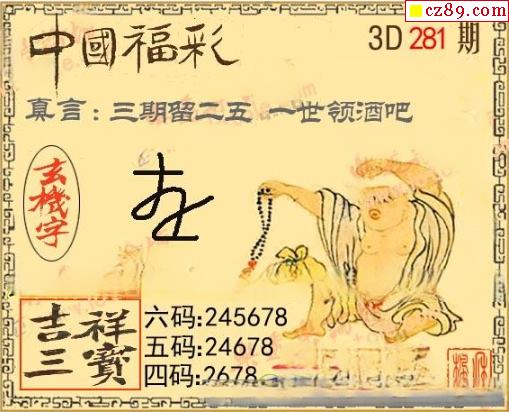 cz89.com
中國福彩
3D 281 期
真言：三期留二五 一世领酒吧
玄機字
吉祥三寶
六码:245678
五码:24678
四码:2678